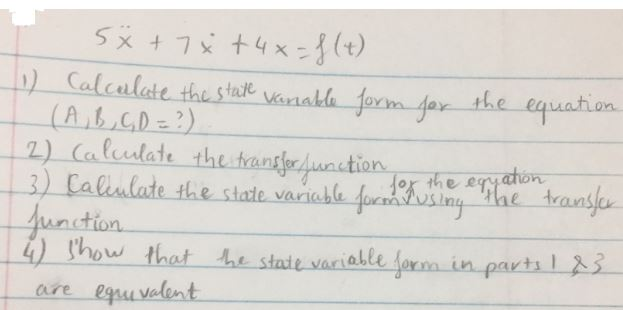 5ẍ + 7ẋ + 4x = f(t)
1) Calculate the state variable form for the equation
(A, B, C, D = ?)
2) Calculate the transfer function
3) Calculate the state variable form for the equation using the transfer
function
4) Show that the state variable form in parts 1 & 3
are equivalent